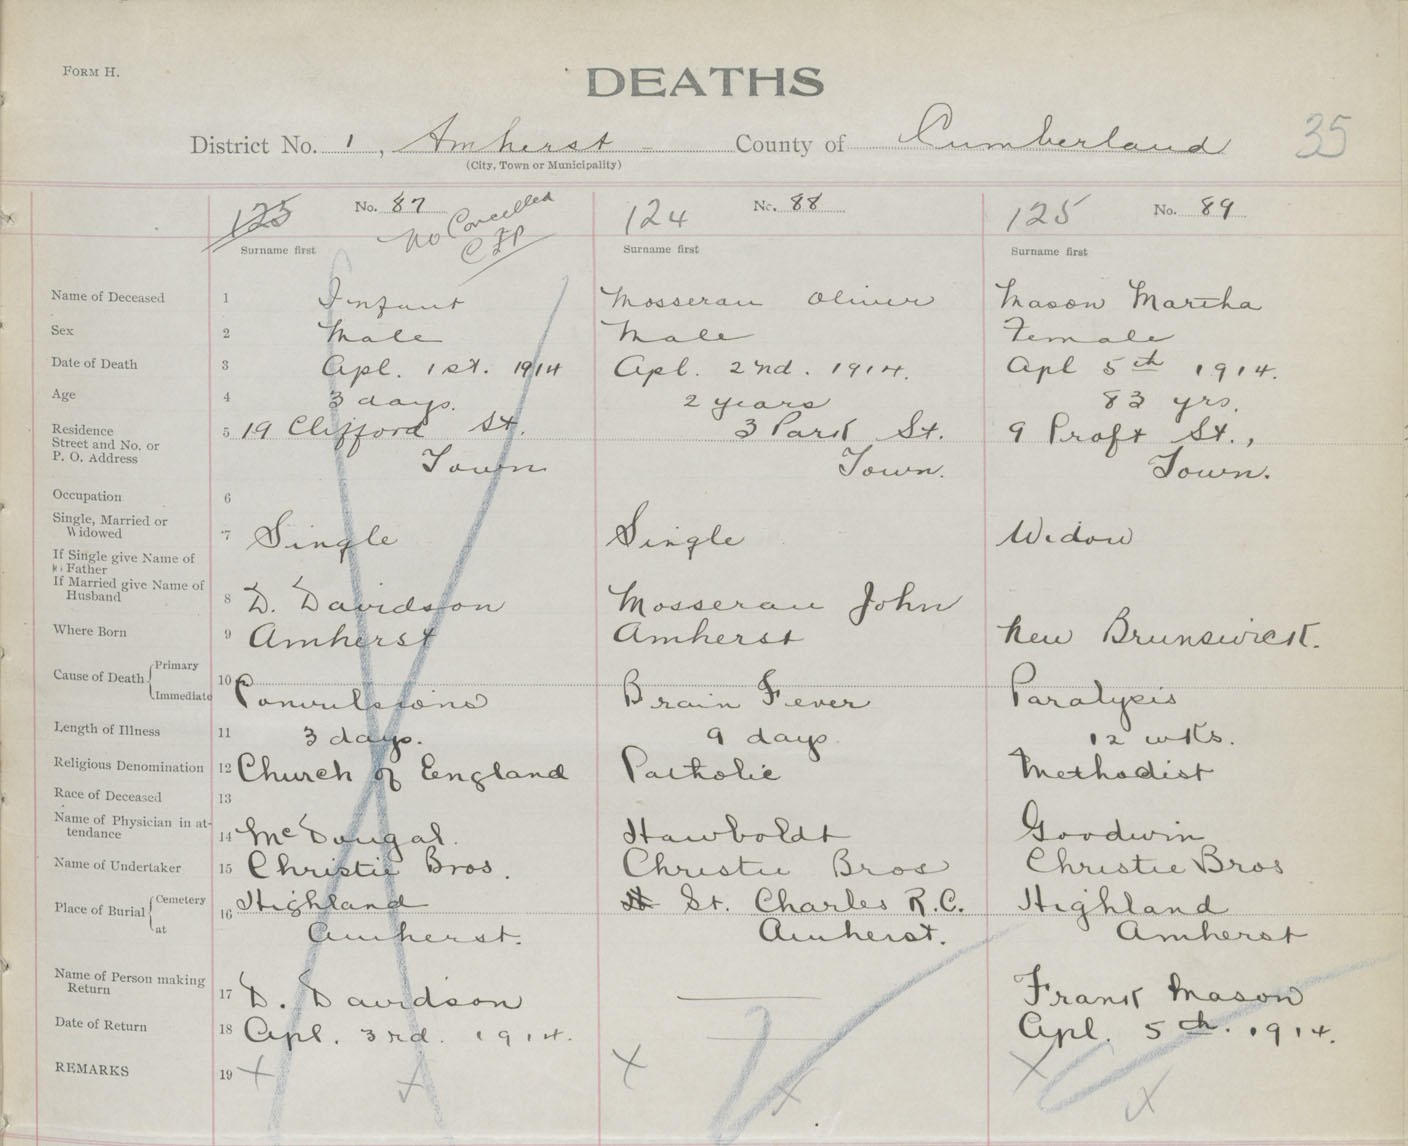 FORM H.
DEATHS
District No. 1, Amherst County of Cumberland 35
(City, Town or Municipality)
123 No. 87 124 No. 88 125 No. 89
No Cancelled
Surname first Surname first Surname first
Name of Deceased 1 Infant Mosserau Oliver Mason Martha
Sex 2 Male Male Female
Date of Death 3 Apl. 1st. 1914 Apl. 2nd. 1914. Apl 5th 1914.
Age 4 3 days. 2 years 83 yrs.
Residence
Street and No. or 5 19 Clifford St. 3 Park St. 9 Pratt St.,
P. O. Address Town Town. Town.
Occupation 6
Single, Married or
Widowed 7 Single Single Widow
If Single give Name of
Father
If Married give Name of
Husband 8 D. Davidson Mosserau John
Where Born 9 Amherst Amherst New Brunswick.
Cause of Death Primary 10
Immediate Convulsions Brain Fever Paralysis
Length of Illness 11 3 days. 9 days 12 wks.
Religious Denomination 12 Church of England Catholic Methodist
Race of Deceased 13
Name of Physician in at-
tendance 14 McDougal. Hawboldt Goodwin
Name of Undertaker 15 Christie Bros. Christie Bros Christie Bros
Place of Burial Cemetery 16 Highland St. Charles R.C. Highland
at Amherst. Amherst. Amherst
Name of Person making
Return 17 D. Davidson Frank Mason
Date of Return 18 Apl. 3rd. 1914. Apl. 5th. 1914.
REMARKS 19 x x x x x x